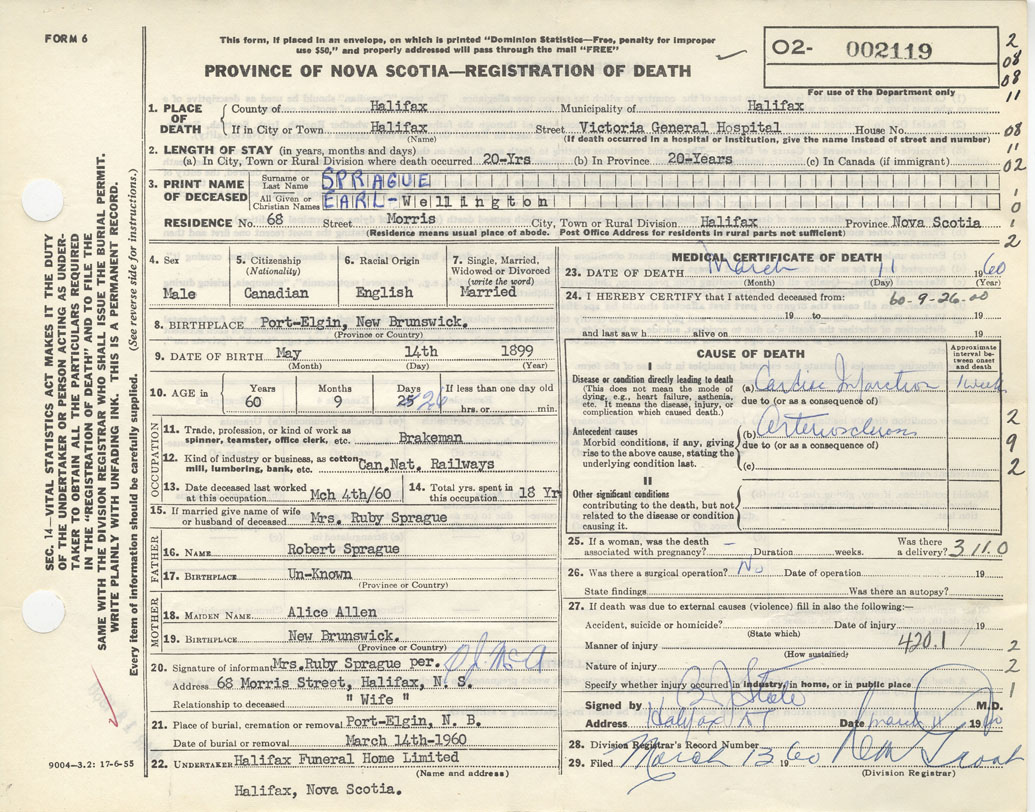 FORM 6
This form, if placed in an envelope, on which is printed "Dominion Statistics—Free, penalty for improper
use $50," and properly addressed will pass through the mail "FREE"
PROVINCE OF NOVA SCOTIA—REGISTRATION OF DEATH
02- 002119
For use of the Department only
2
08
08
11
1. PLACE OF DEATH { County of Halifax Municipality of Halifax
If in City or Town Halifax Street Victoria General Hospital House No. 08
(Name) (If death occurred in a hospital or Institution, give the name instead of street and number) 11
2. LENGTH OF STAY (in years, months and days)
(a) In City, Town or Rural Division where death occurred 20-Yrs (b) In Province 20-Years (c) In Canada (if immigrant) 02
3. PRINT NAME OF DECEASED { Surname or Last Name SPRAGUE
All Given or Christian Names EARL-Wellington
RESIDENCE No. 68 Street Morris City, Town or Rural Division Halifax Province Nova Scotia
(Residence means usual place of abode. Post Office Address for residents in rural parts not sufficient)
1
0
1
2
4. Sex
Male
5. Citizenship
(Nationality)
Canadian
6. Racial Origin
English
7. Single, Married,
Widowed or Divorced
(write the word)
Married
8. BIRTHPLACE Port-Elgin, New Brunswick.
(Province or Country)
9. DATE OF BIRTH May 14th 1899
(Month) (Day) (Year)
10. AGE in Years Months Days If less than one day old
60 9 25 26 hrs. or min.
OCCUPATION
11. Trade, profession, or kind of work as
spinner, teamster, office clerk, etc. Brakeman
12. Kind of industry or business, as cotton
mill, lumbering, bank, etc. Can.Nat. Railways
13. Date deceased last worked
at this occupation Mch 4th/60
14. Total yrs. spent in
this occupation 18 Yr
15. If married give name of wife
or husband of deceased Mrs. Ruby Sprague
FATHER
16. NAME Robert Sprague
17. BIRTHPLACE Un-Known
(Province or Country)
MOTHER
18. MAIDEN NAME Alice Allen
19. BIRTHPLACE New Brunswick.
(Province or Country)
20. Signature of informant Mrs.Ruby Sprague per.
Address 68 Morris Street, Halifax, N. S.
Relationship to deceased " Wife "
21. Place of burial, cremation or removal Port-Elgin, N. B.
Date of burial or removal March 14th-1960
22. UNDERTAKER Halifax Funeral Home Limited
(Name and address)
Halifax, Nova Scotia.
MEDICAL CERTIFICATE OF DEATH
23. DATE OF DEATH March 11 1960
(Month) (Day) (Year)
24. I HEREBY CERTIFY that I attended deceased from: 60-9-26-00
19 to 19
and last saw h alive on 19
CAUSE OF DEATH
Approximate
interval be-
tween onset
and death
I
Disease or condition directly leading to death
(This does not mean the mode of
dying, e.g., heart failure, asthenia,
etc. It means the disease, injury, or
complication which caused death.)
(a) Cardiac Infarction 1 week
due to (or as a consequence of)
Antecedent causes
Morbid conditions, if any, giving
rise to the above cause, stating the
underlying condition last.
(b) Arteriosclerosis
due to (or as a consequence of)
(c)
II
Other significant conditions
contributing to the death, but not
related to the disease or condition
causing it.
2
9
2
25. If a woman, was the death
associated with pregnancy? – Duration weeks. Was there
a delivery? 311.0
26. Was there a surgical operation? No Date of operation 19
State findings Was there an autopsy?
27. If death was due to external causes (violence) fill in also the following:—
Accident, suicide or homicide? Date of injury 19
(State which)
Manner of injury 420.1 2
(How sustained)
Nature of injury 2
Specify whether injury occurred in industry, in home, or in public place 1
Signed by M.D.
Address Halifax Date March 11 1960
28. Division Registrar's Record Number
29. Filed March 13 1960
(Division Registrar)
SEC. 14—VITAL STATISTICS ACT MAKES IT THE DUTY
OF THE UNDERTAKER OR PERSON ACTING AS UNDER-
TAKER TO OBTAIN ALL THE PARTICULARS REQUIRED
IN THE "REGISTRATION OF DEATH" AND TO FILE THE
SAME WITH THE DIVISION REGISTRAR WHO SHALL ISSUE THE BURIAL PERMIT.
WRITE PLAINLY WITH UNFADING INK. THIS IS A PERMANENT RECORD.
Every item of information should be carefully supplied. (See reverse side for instructions.)
9004-3.2: 17-6-55